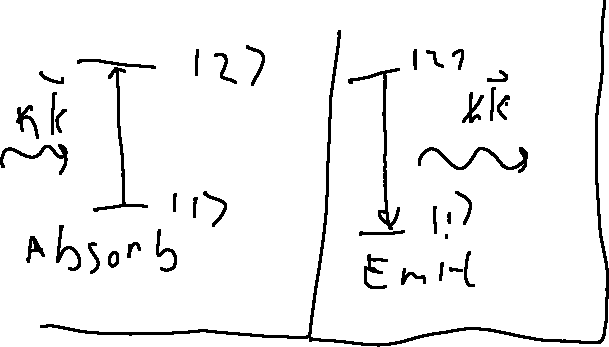 |2⟩
ℏk⃗
|1⟩
Absorb
|2⟩
ℏk⃗
|1⟩
Emit